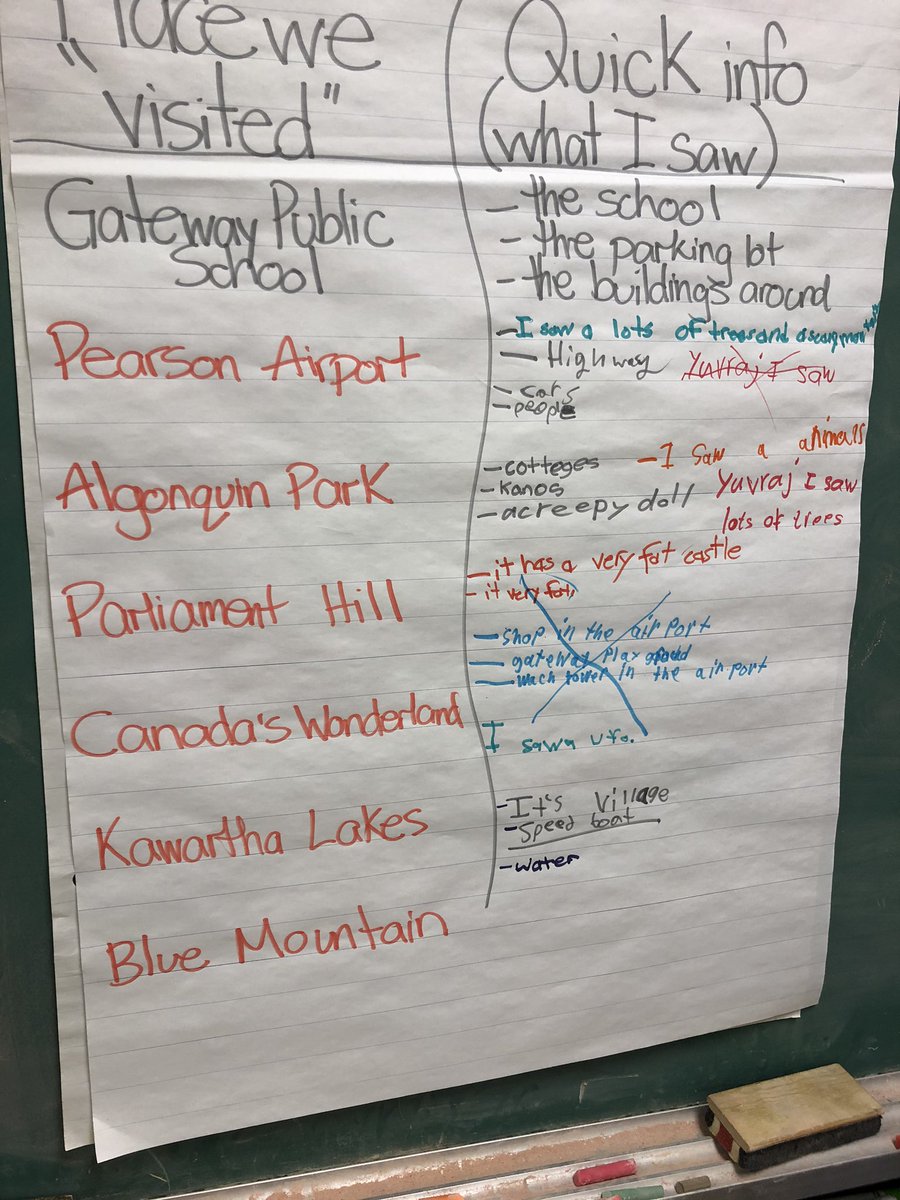 "Place we
visited"
Quick info
(what I saw)
Gateway Public
School
- the school
- the parking lot
- the buildings around
Pearson Airport
- I saw a lots of trees and
- Highway Yuvraj I saw
- cars
- people
Algonquin Park
- cotteges - I saw a animals
- kanos Yuvraj I saw
- a creepy doll lots of trees
Parliament Hill
- it has a very fat castle
- it very fat
- shop in the air port
- gateway play
- wach tower in the air port
Canada's Wonderland
I saw a ufo.
Kawartha Lakes
- It's Village
- Speed boat
- water
Blue Mountain